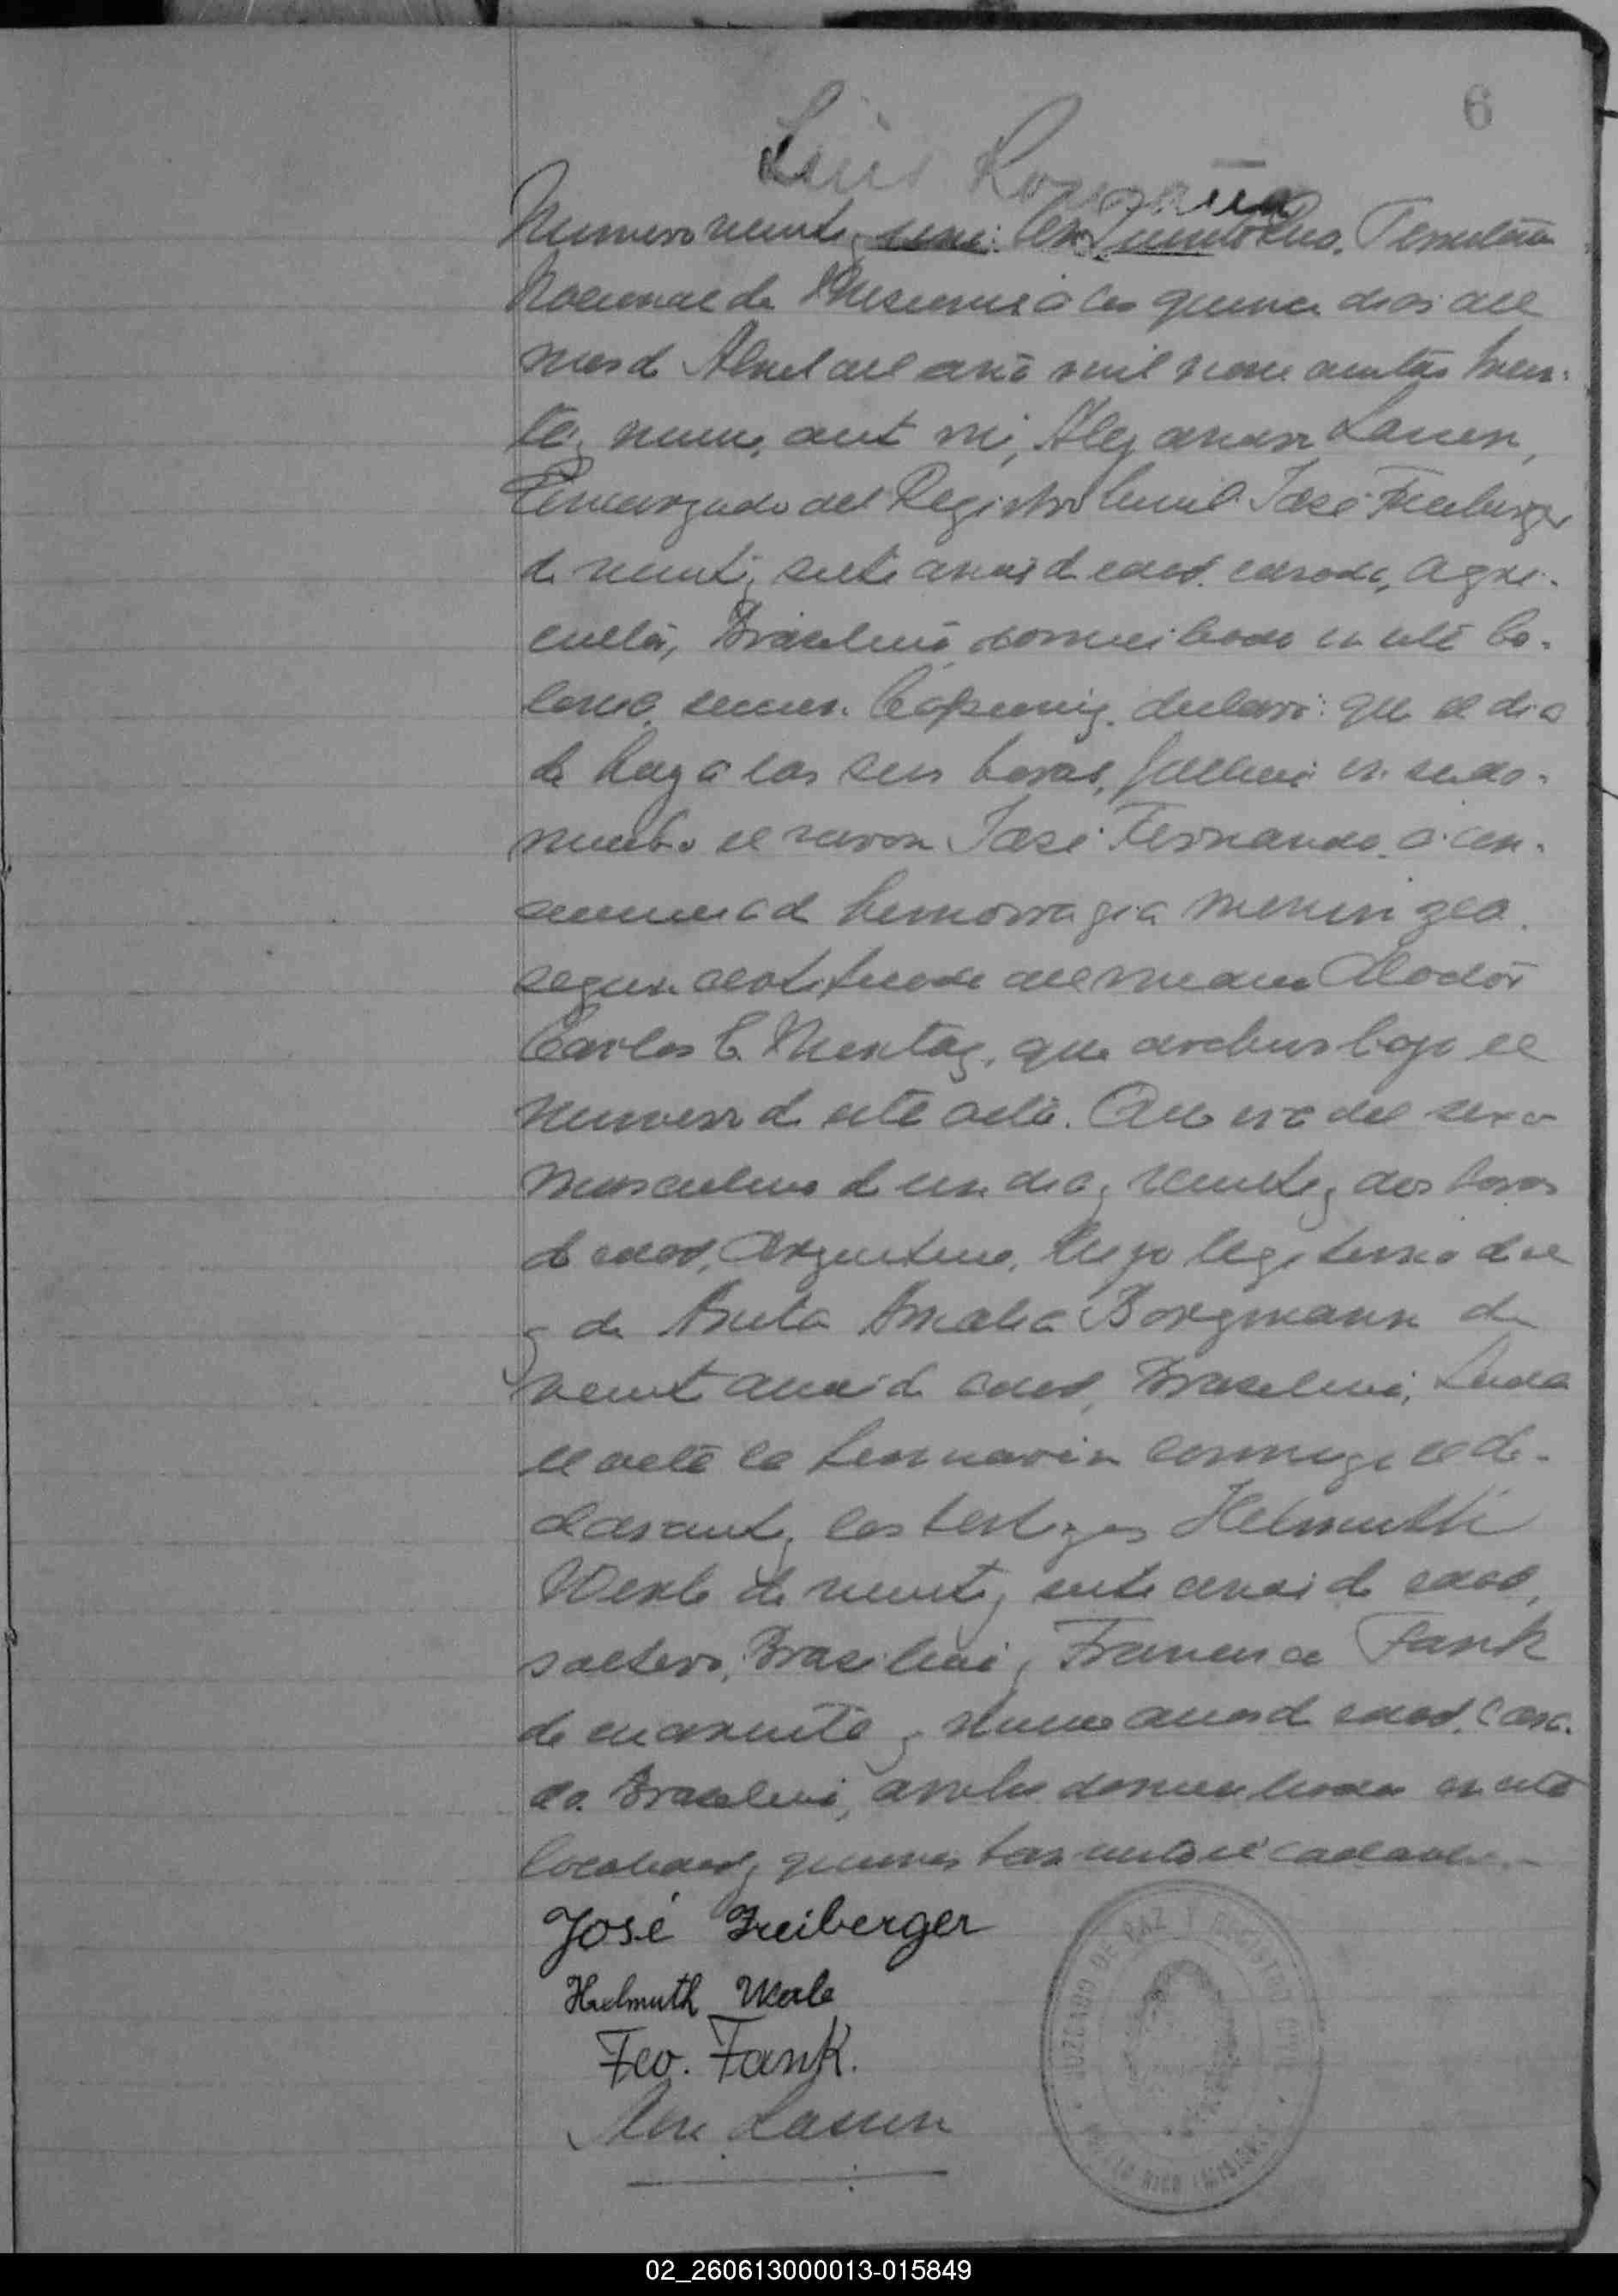 6
Luis
Numero veinte y En Puerto Rico. Territorio
Nacional de Misiones a los quince dias del
mes de Abril del año mil nove cientos trein-
ta y nueve, ante mi, Alejandro Lassen,
Encargado del Registro Civil. José Freiberger
de veinte y siete años de edad, casado, agri-
cultor, Brasilero domiciliado en esta Co-
lonia, declaró: que el dia
de hoy a las seis horas, fallecio en su do-
micilio el varon José Fernando a con-
secuencia de hemorragia meningea
segun certificado del medico Doctor
Carlos C. que archivo bajo el
numero de esta acta. Que era del sexo
masculino de un dia y veinte y dos horas
de edad, Argentino, hijo legitimo de el
y de Anita Amalia Borgmann de
veinte años de edad, Brasilera, Leida
el acta la firmaron conmigo el de-
clarante y los testigos Helmuth
Werle de veinte y siete años de edad,
soltero, Brasilero y Francisco Fank
de cuarenta y nueve años de edad, casa-
do. Brasilero, ambos domiciliados en esta
localidad y quienes han visto el cadaver.-
José Freiberger
Helmuth Werle
Fco. Fank.
Alex Lassen
JUZGADO DE PAZ Y REGISTRO CIVIL
PUERTO RICO (MISIONES)
02_260613000013-015849